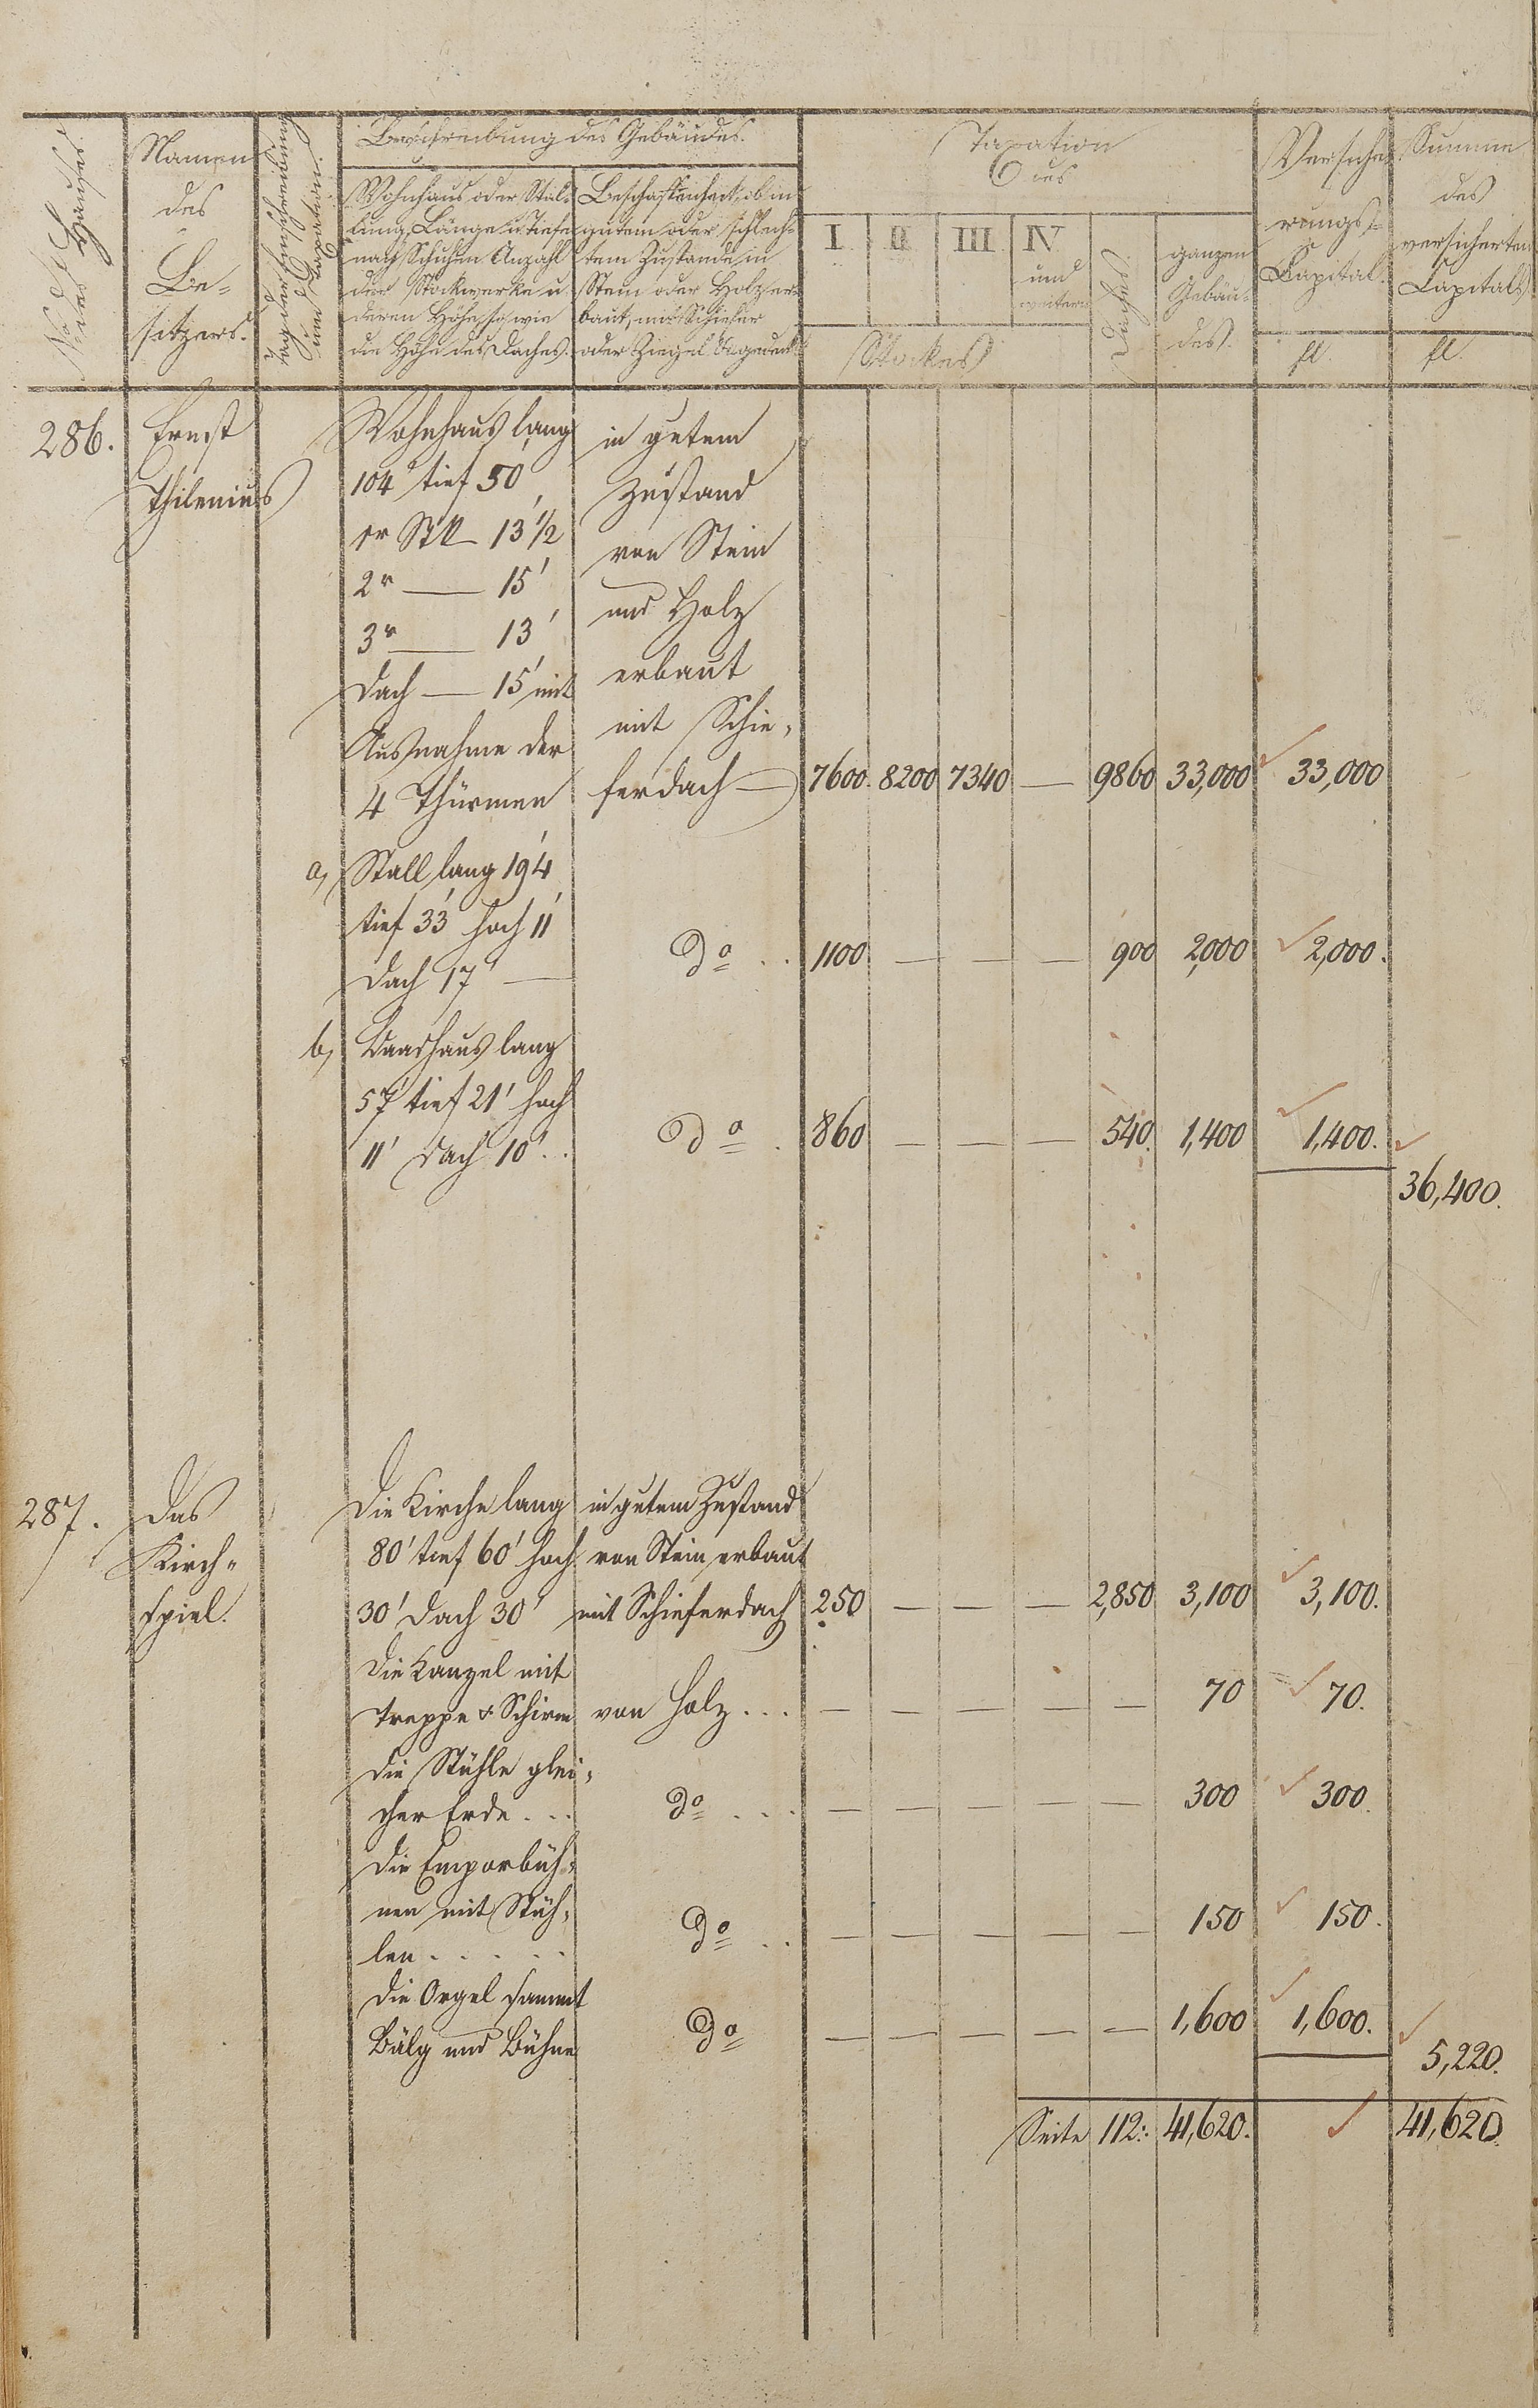 No des Hauses.
Namen
des
Be-
sitzers.
Tag der Einschreibung
und Taxation.
Beschreibung des Gebäudes.
Wohnhaus oder Stal-
lung, Länge u. Tiefe
nach Schuhen Anzahl
der Stockwerke u.
deren Höhe, so wie
die Höhe des Daches.
Beschaffenheit, ob in
gutem oder schlech-
tem Zustande in
Stein oder Holz er-
baut, mit Schiefer
oder Ziegel
Taxation
des
I. II III IV
und
weitern
Stockes
Daches.
ganzen
Gebäu-
des.
Versiche-
rungs-
Capital.
fl.
Summe
des
versicherten
Capitals
fl.
286. Ernst
Thilenius
Wohnhaus lang
104' tief 50'
1r Stk 13 1/2'
2r — 15'
3r — 13'
Dach — 15' mit
Ausnahme der
4 Thürmen
in gutem
Zustand
von Stein
und Holz
erbaut
mit Schie-
ferdach — 7600. 8200 7340 — 9860 33,000 33,000
a, Stall lang 194'
tief 33' hoch 11'
Dach 17' — do . . 1100 — — — 900 2,000 2,000.
b, Baadhaus lang
57' tief 21' hoch
11' Dach 10' . . do . 860 — — — 540. 1,400 1,400.
36,400.
287. Das
Kirch-
spiel.
Die Kirche lang in gutem Zustand
80' tief 60' hoch von Stein erbaut
30' Dach 30' mit Schieferdach 250 — — — 2,850 3,100 3,100.
Die Kanzel mit
Treppe & Schirm von Holz . . . — — — — — 70 70.
Die Stühle glei-
cher Erde . . . do . . . — — — — — 300 300.
Die Emporbüh-
nen mit Stüh-
len . . . . . do . . — — — — — 150 150.
Die Orgel sammt
Bälg und Bühne do — — — — — 1,600 1,600.
5,220.
Seite 112: 41,620. 41,620.